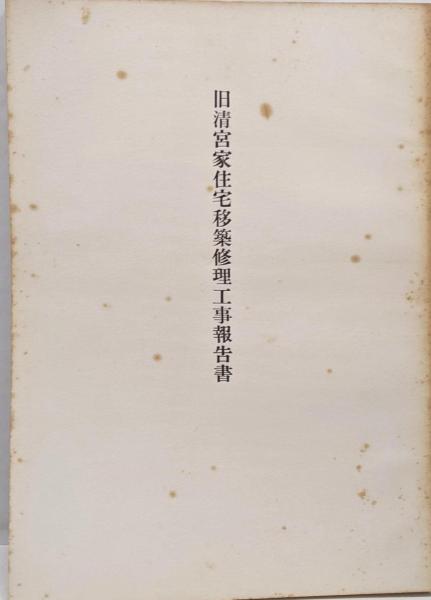 旧清宮家住宅移築修理工事報告書